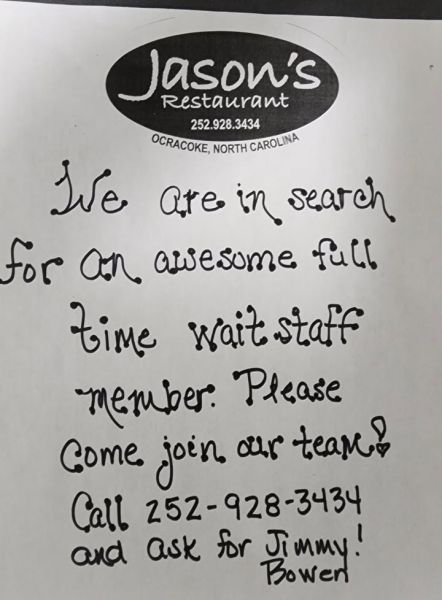 Jason's
Restaurant
252.928.3434
OCRACOKE, NORTH CAROLINA
We are in search
for an awesome full
time wait staff
member. Please
come join our team!
Call 252-928-3434
and ask for Jimmy!
Bowen